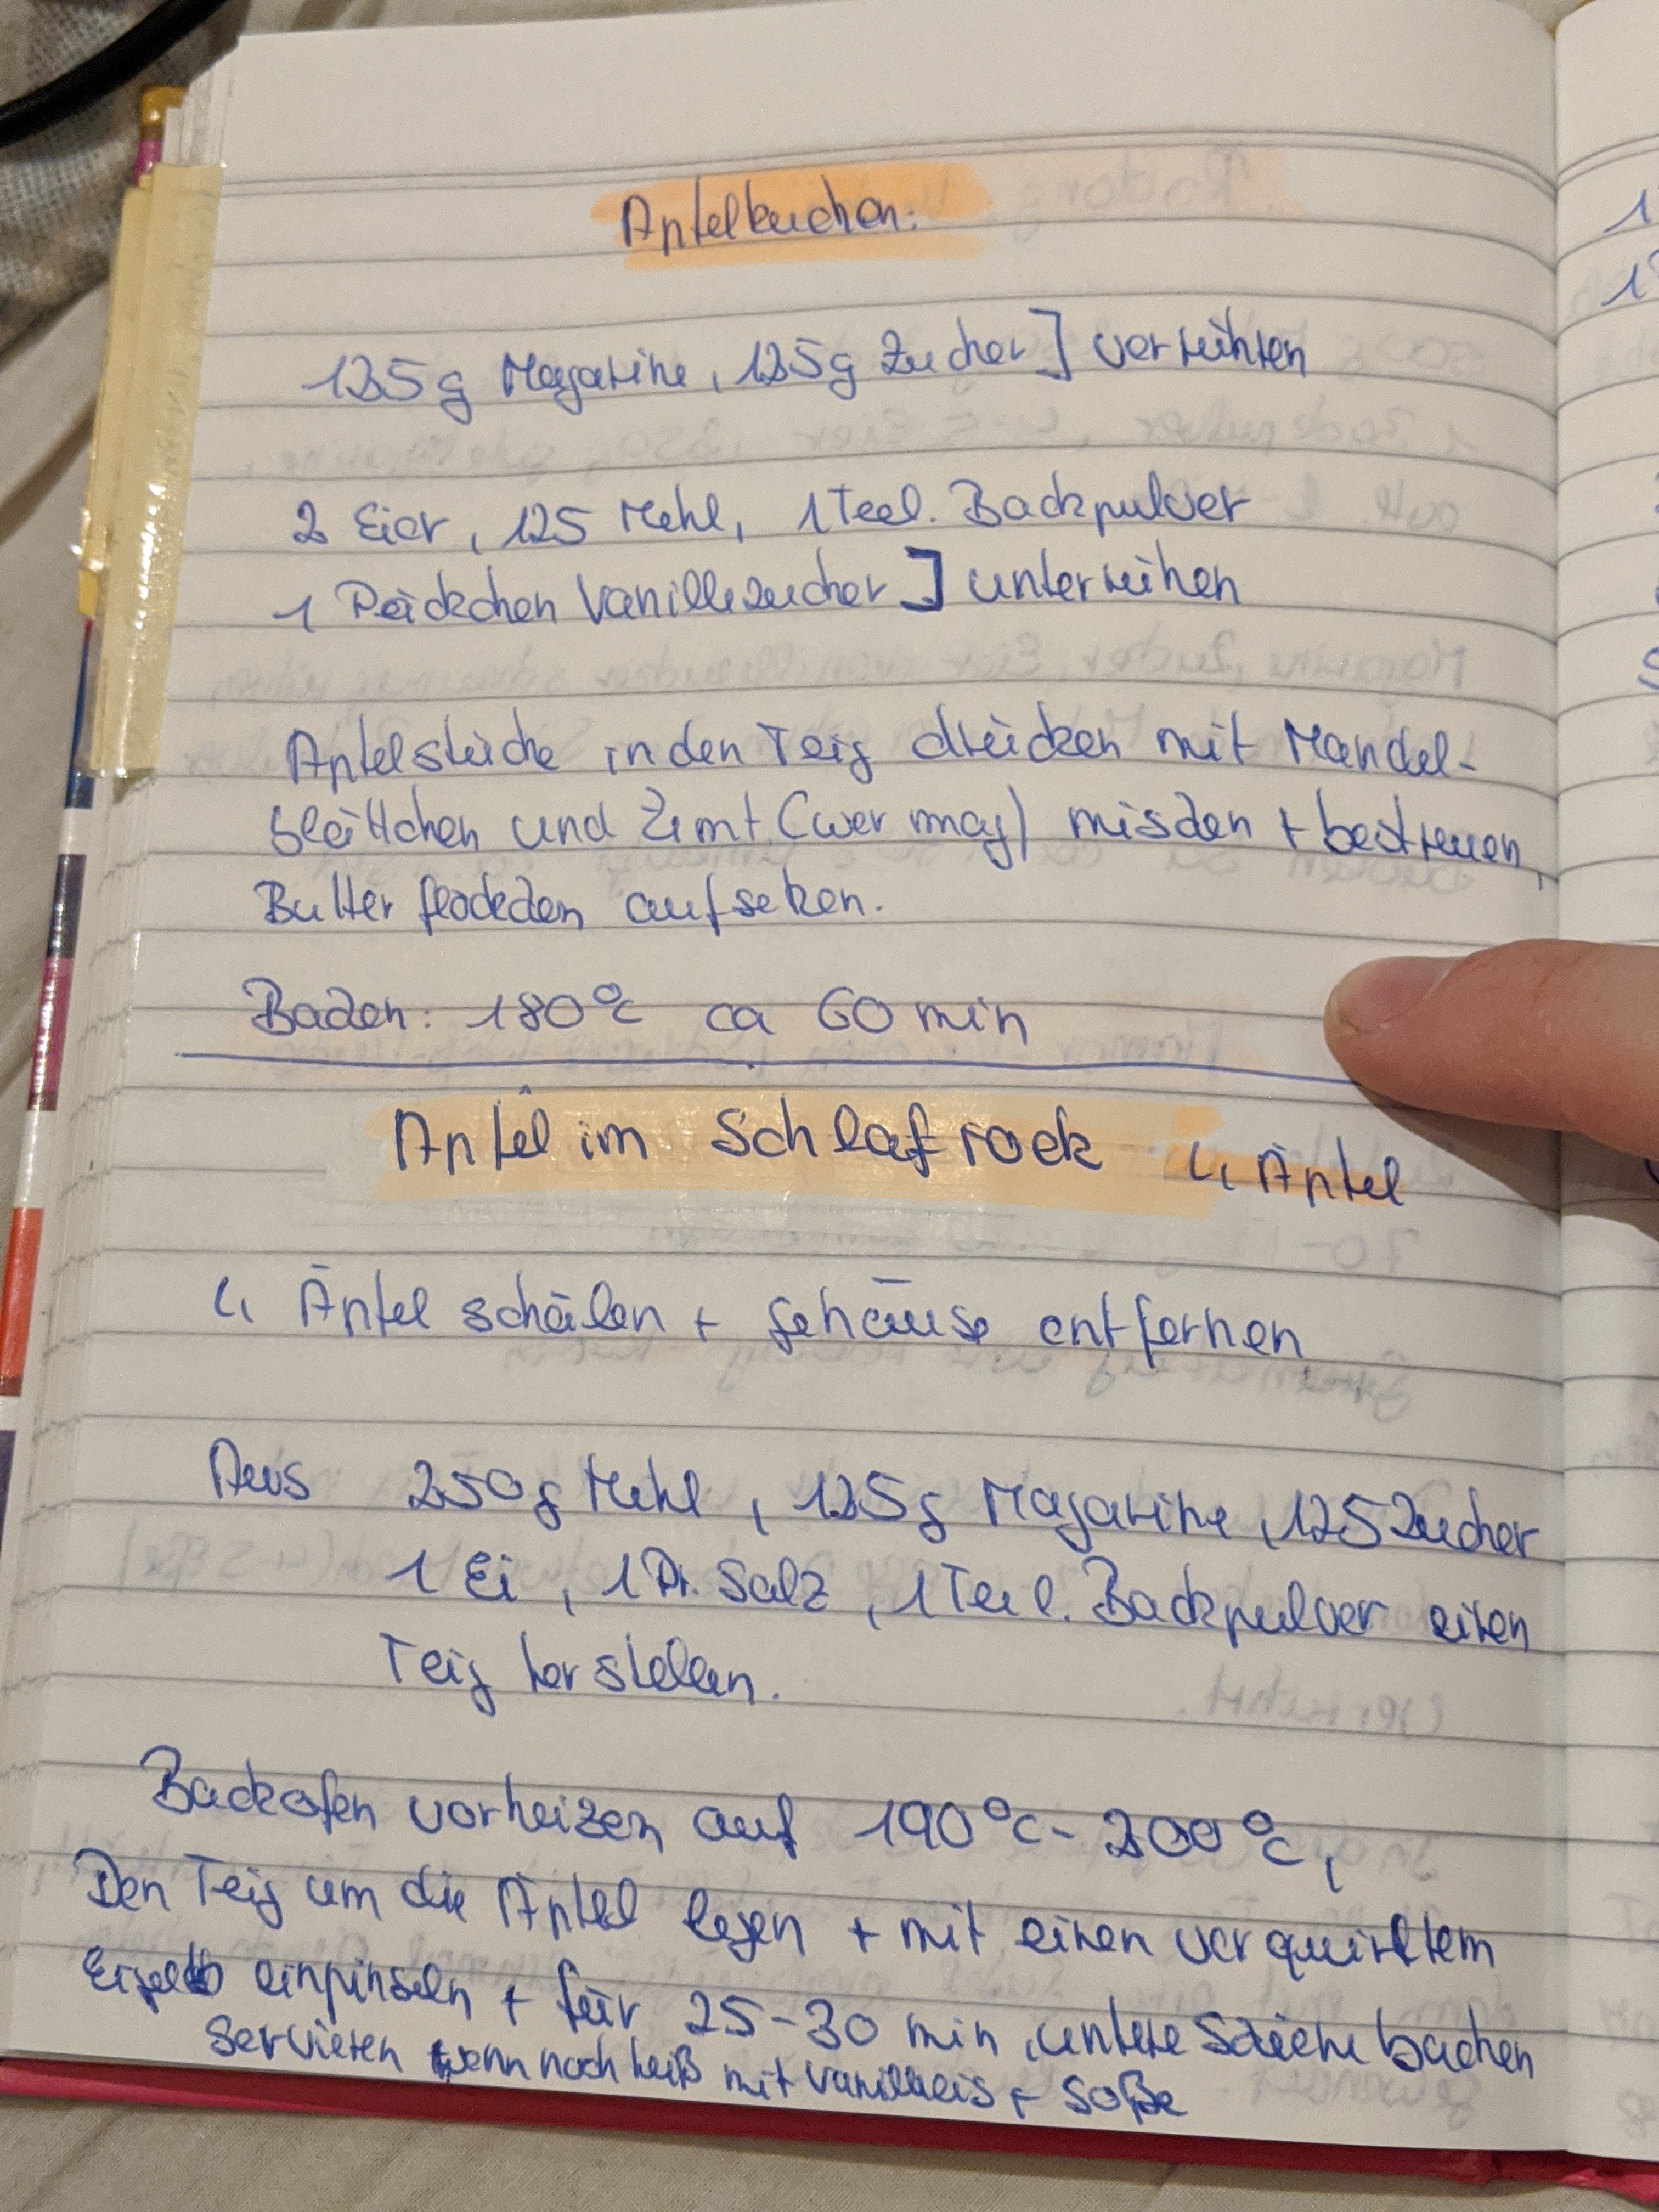 Apfelkuchen:
125g Magarine, 125g Zucker] verrühren
2 Eier, 125 Mehl, 1 Teel. Backpulver
1 Päckchen Vanillezucker] unterrühren
Apfelstücke in den Teig drücken mit Mandel-
blättchen und Zimt (wer mag) mischen + bestreuen,
Butter flocken aufsetzen.
Backen: 180°C ca 60 min
Apfel im Schlafrock 4 Äpfel
4 Äpfel schälen + Gehäuse entfernen
Aus 250g Mehl, 125g Magarine, 125 Zucker
1 Ei, 1 Pr. Salz, 1 Teel. Backpulver einen
Teig herstellen.
Backofen vorheizen auf 190°C - 200°C,
Den Teig um die Äpfel legen + mit einen verquirltem
Eigelb einpinseln + für 25-30 min, untere Schiene backen
Servieren wenn noch heiß mit Vanilleeis + Soße